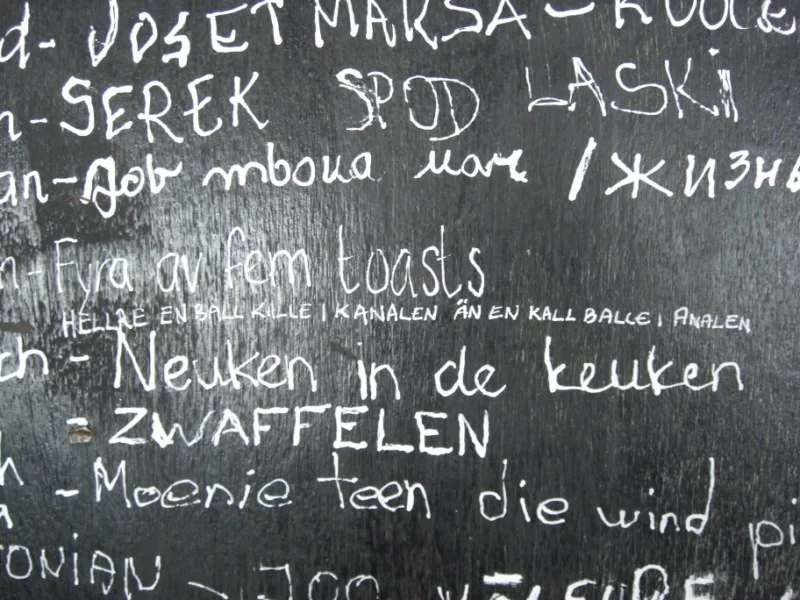 d- JOSET MAKSA -
n- SEREK SPOD LASKi
an- / ЖИЗНЬ
n- Fyra av fem toasts
HELLRE EN BALL KILLE I KANALEN ÄN EN KALL BALLE I ANALEN
ch - Neuken in de keuken
- ZWAFFELEN
- Moenie teen die wind pi
ONiAN -